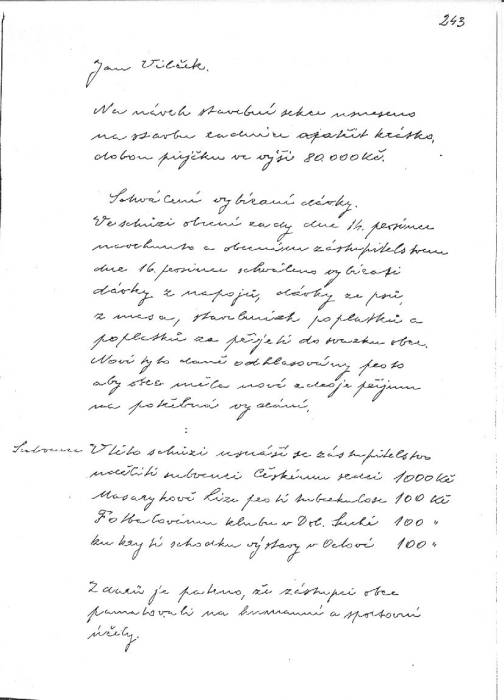 243
Jan Vilček.
Na návrh stavební sekce usneseno
na stavbu radnice opatřit krátko,
dobou půjčku ve výši 80.000 Kč.
Schválení vybírání dávky.
Ve schůzi obecní rady dne 14. prosince
navrhnuto a obecním zastupitelstvem
dne 16. prosince schváleno vybírati
dávky z nápojů, dávky ze psů,
z masa, stavebních poplatků a
poplatků za přijetí do svazku obec.
Nové tyto daně odhlasovány proto
aby obec měla nové zdroje příjmu
na potřebná vydání.
Subvence V této schůzi usnáší se zastupitelstvo
uděliti subvenci Českému srdci 1000 Kč
Masarykově Lize proti tuberkulose 100 Kč
Fotbalovému klubu v Dol. Suché 100 "
ku krytí schodku výstavy v Orlové 100 "
Z darů je patrno, že zástupci obce
pamatovali na humanní a sportovní
účely.